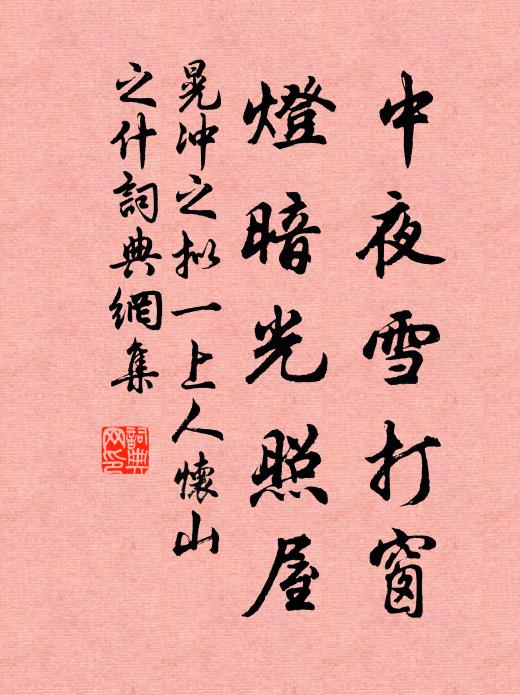 中夜雪打窗
燈暗光照屋
晁沖之拟一上人懷山
之什詞典網集
詞典網印